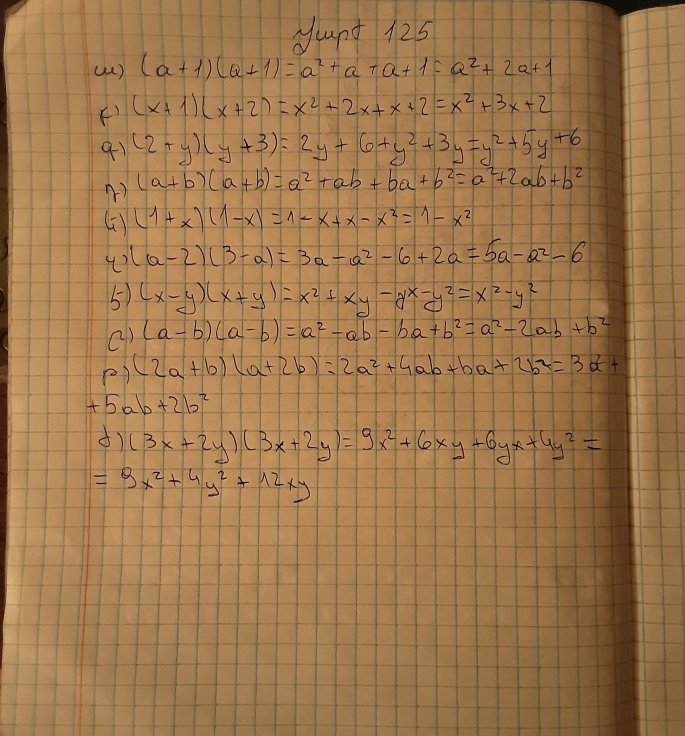 125
(a+1)(a+1)=a²+a+a+1=a²+2a+1
(x+1)(x+2)=x²+2x+x+2=x²+3x+2
(2+y)(y+3)=2y+6+y²+3y=y²+5y+6
(a+b)(a+b)=a²+ab+ba+b²=a²+2ab+b²
(1+x)(1-x)=1-x+x-x²=1-x²
(a-2)(3-a)=3a-a²-6+2a=5a-a²-6
(x-y)(x+y)=x²+xy-yx-y²=x²-y²
(a-b)(a-b)=a²-ab-ba+b²=a²-2ab+b²
(2a+b)(a+2b)=2a²+4ab+ba+2b²=3a+
+5ab+2b²
(3x+2y)(3x+2y)=9x²+6xy+6yx+4y²=
=9x²+4y²+12xy